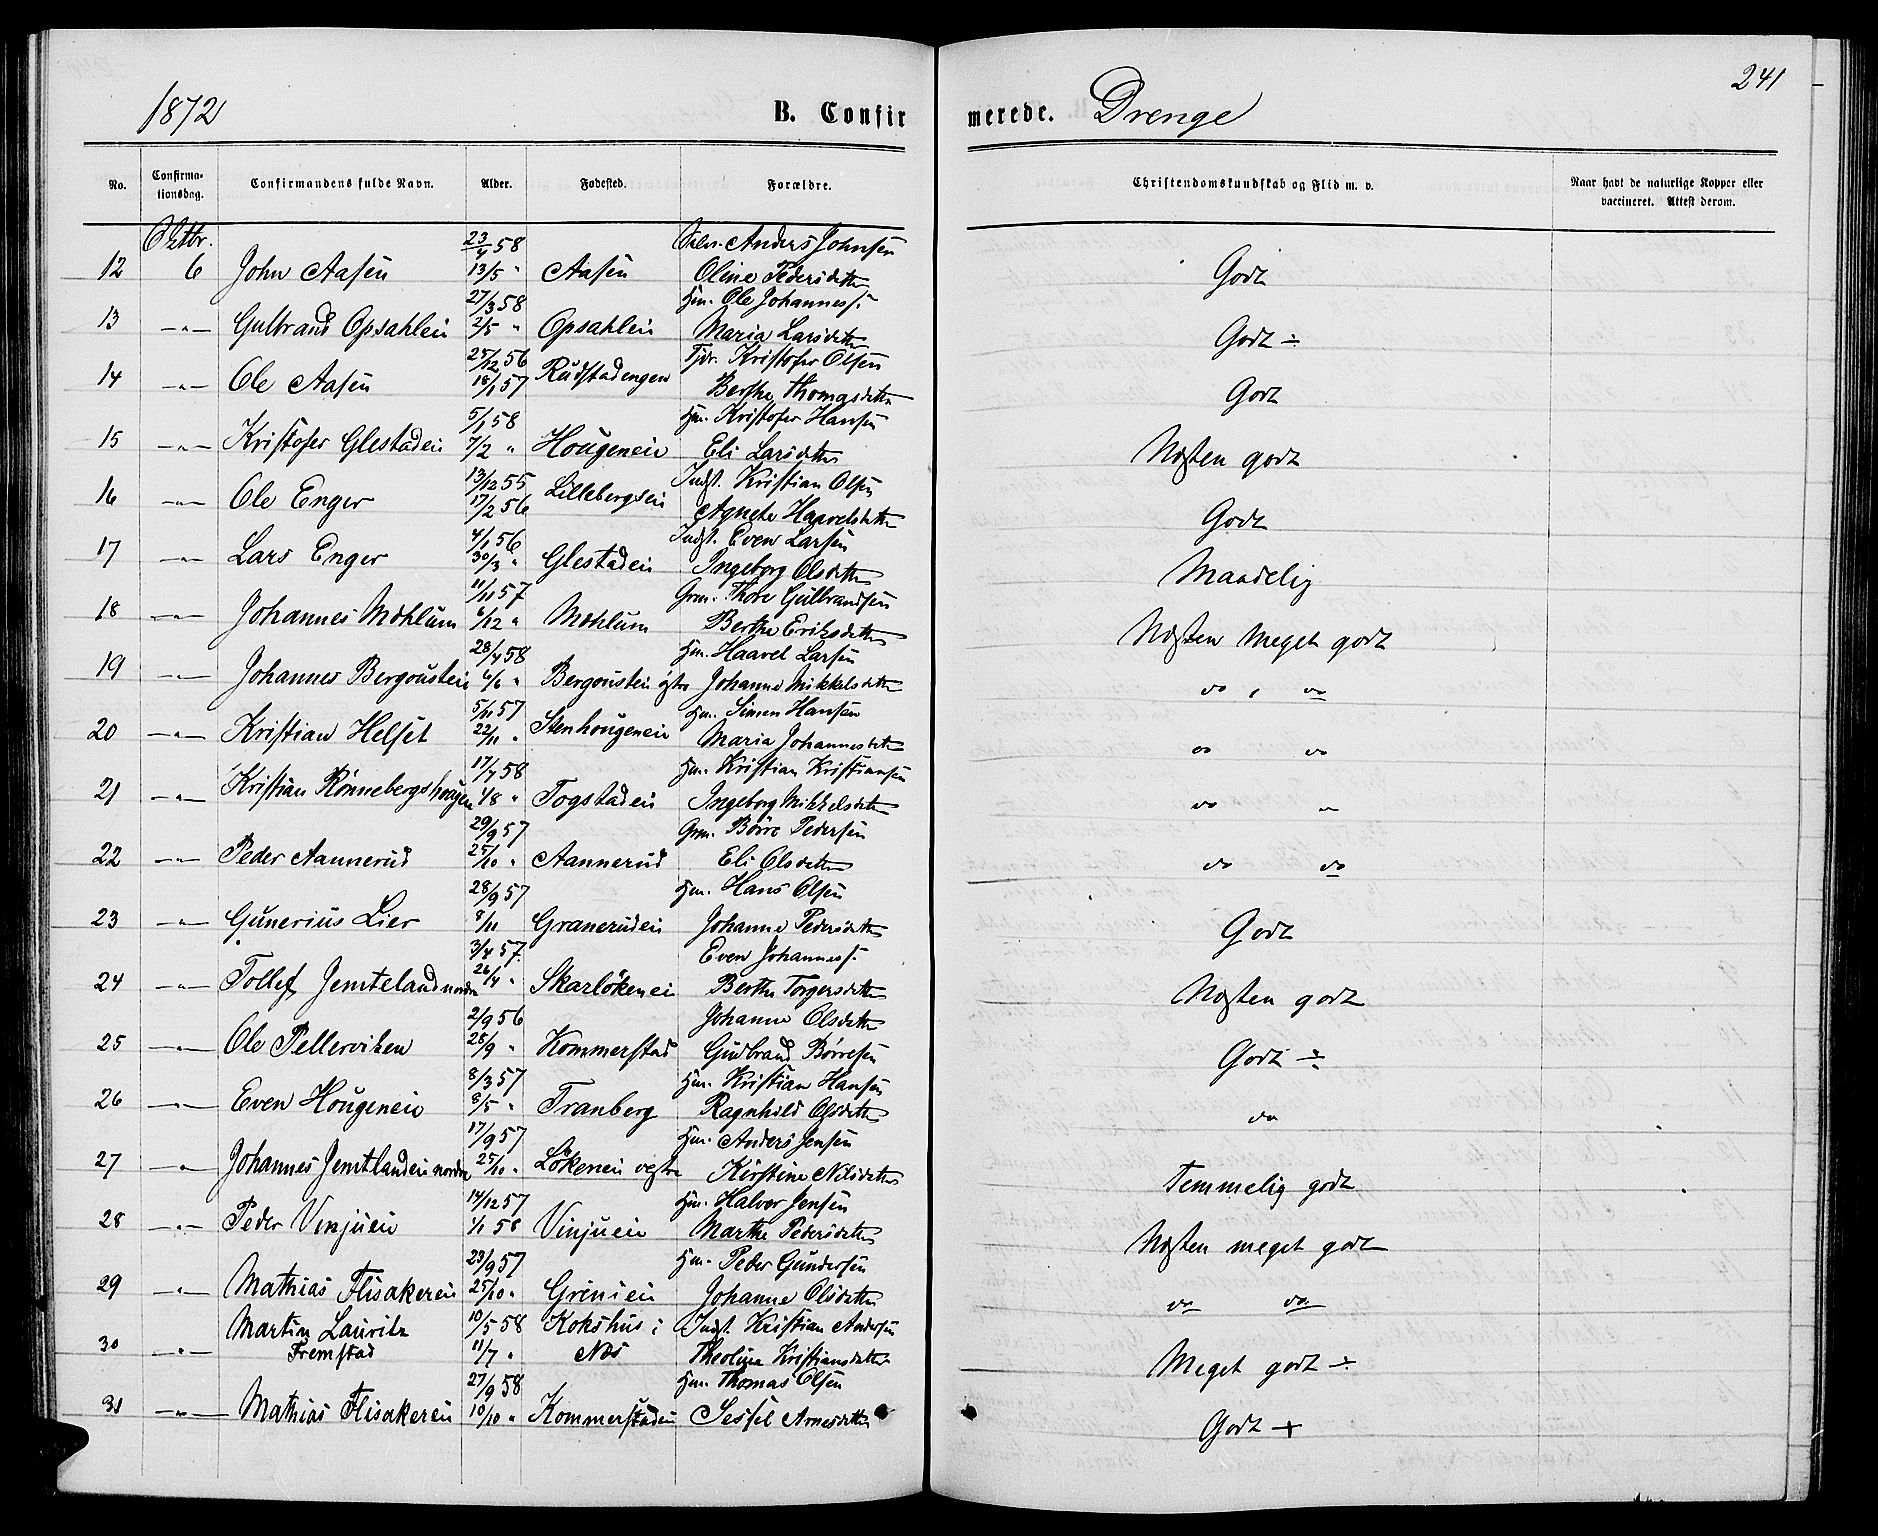 1872
B. Confirmerede. Drenge
241
No. | Confirmationsdag. | Confirmandens fulde Navn. | Alder. | Fødested. | Forældre. | Christendomskundskab og Flid m. v. | Naar havt de naturlige Kopper eller vaccineret. Attest derom.
Oktbr.
23/4 58 Selv. Anders Johnsen
12 6 John Aasen 13/5 " Aasen Oline Pedersdatter Godt
27/3 58 Hm. Ole Johanness.
13 —"— Gulbrand Opsahlein 2/5 " Opsahlein Maria Larsdatter Godt ÷
25/12 56 Fjdr. Kristofer Olsen
14 —"— Ole Aasen 18/1 57 Rudstadengen Berthe Thomasdatter Godt
5/1 58 Hm. Kristofer Hansen
15 —"— Kristofer Glestadei 7/2 " Hougeneie Eli Larsdatter Næsten godt
13/12 55 Indst. Kristian Olsen
16 —"— Ole Enger 17/2 56 Lillebergsei Agnete Haavelsdatter Godt
4/1 56 Indst. Even Larsen
17 —"— Lars Enger 30/3 " Glestadeii Ingeborg Olsdatter Maadelig
11/11 57 Grm. Thore Gulbrandsen
18 —"— Johannes Mæhlum 6/12 " Mæhlum Berthe Eriksdatter Næsten meget godt
28/4 58 Hm. Haavel Larsen
19 —"— Johannes Bergousteie 6/6 " Bergoustei østre Johanne Mikkelsdatter do , do
5/11 57 Hm. Simen Hansen
20 —"— Kristian Helset 22/11 " Stenhougeneie Maria Johannesdatter do do
17/7 58 Hm. Kristian Kristiansen
21 —"— Kristian Rønnebergshougen 1/8 " Togstadeii Ingeborg Mikkelsdatter do "
29/9 57 Grm. Børre Pedersen
22 —"— Peder Aannerud 25/10 " Aannerud Eli Olsdatter do do
28/9 57 Hm. Hans Olsen
23 —"— Gunerius Lier 8/11 Graneruden Johanne Pedersdatter Godt
3/4 57. Even Johanness.
24 —"— Tollef Jemteland nordre 26/4 " Skarløkenei Berthe Torgersdatter Næsten godt
2/9 56 Johanne Olsdatter
25 —"— Ole Pellerviken 28/9 " Kommerstad Gudbrand Børresen Godt ÷
8/3 57 Hm. Kristian Hansen
26 —"— Even Hougeneie 8/5 " Tranberg Ragnhild Olsdatter do
17/9 57 Hm. Anders Jensen
27 —"— Johannes Jemtlandeii nordre 25/10 " Løkeneii vestre Kirstine Nilsdatter Temmelig godt
14/12 57 Hm. Halvor Jensen
28 —"— Peder Vinjueii 1/1 58 Vinjueie Marthe Pedersdatter Næsten meget godt
23/9 57 Hm. Peder Gundersen
29 —"— Mathias Flisakereii 25/10 " Grenieii Johanne Olsdatter do do
Martin Lauritz 10/5 58 Kokshus i Indst. Kristian Andersen
30 —"— Fremstad 11/7 " Næs Theoline Kristiansdatter Meget godt ÷
27/9 58 Hm. Thomas Olsen
31 —"— Mathias Flisakereii 10/10 " Kommerstadeii Sessel Arnesdatter Godt +